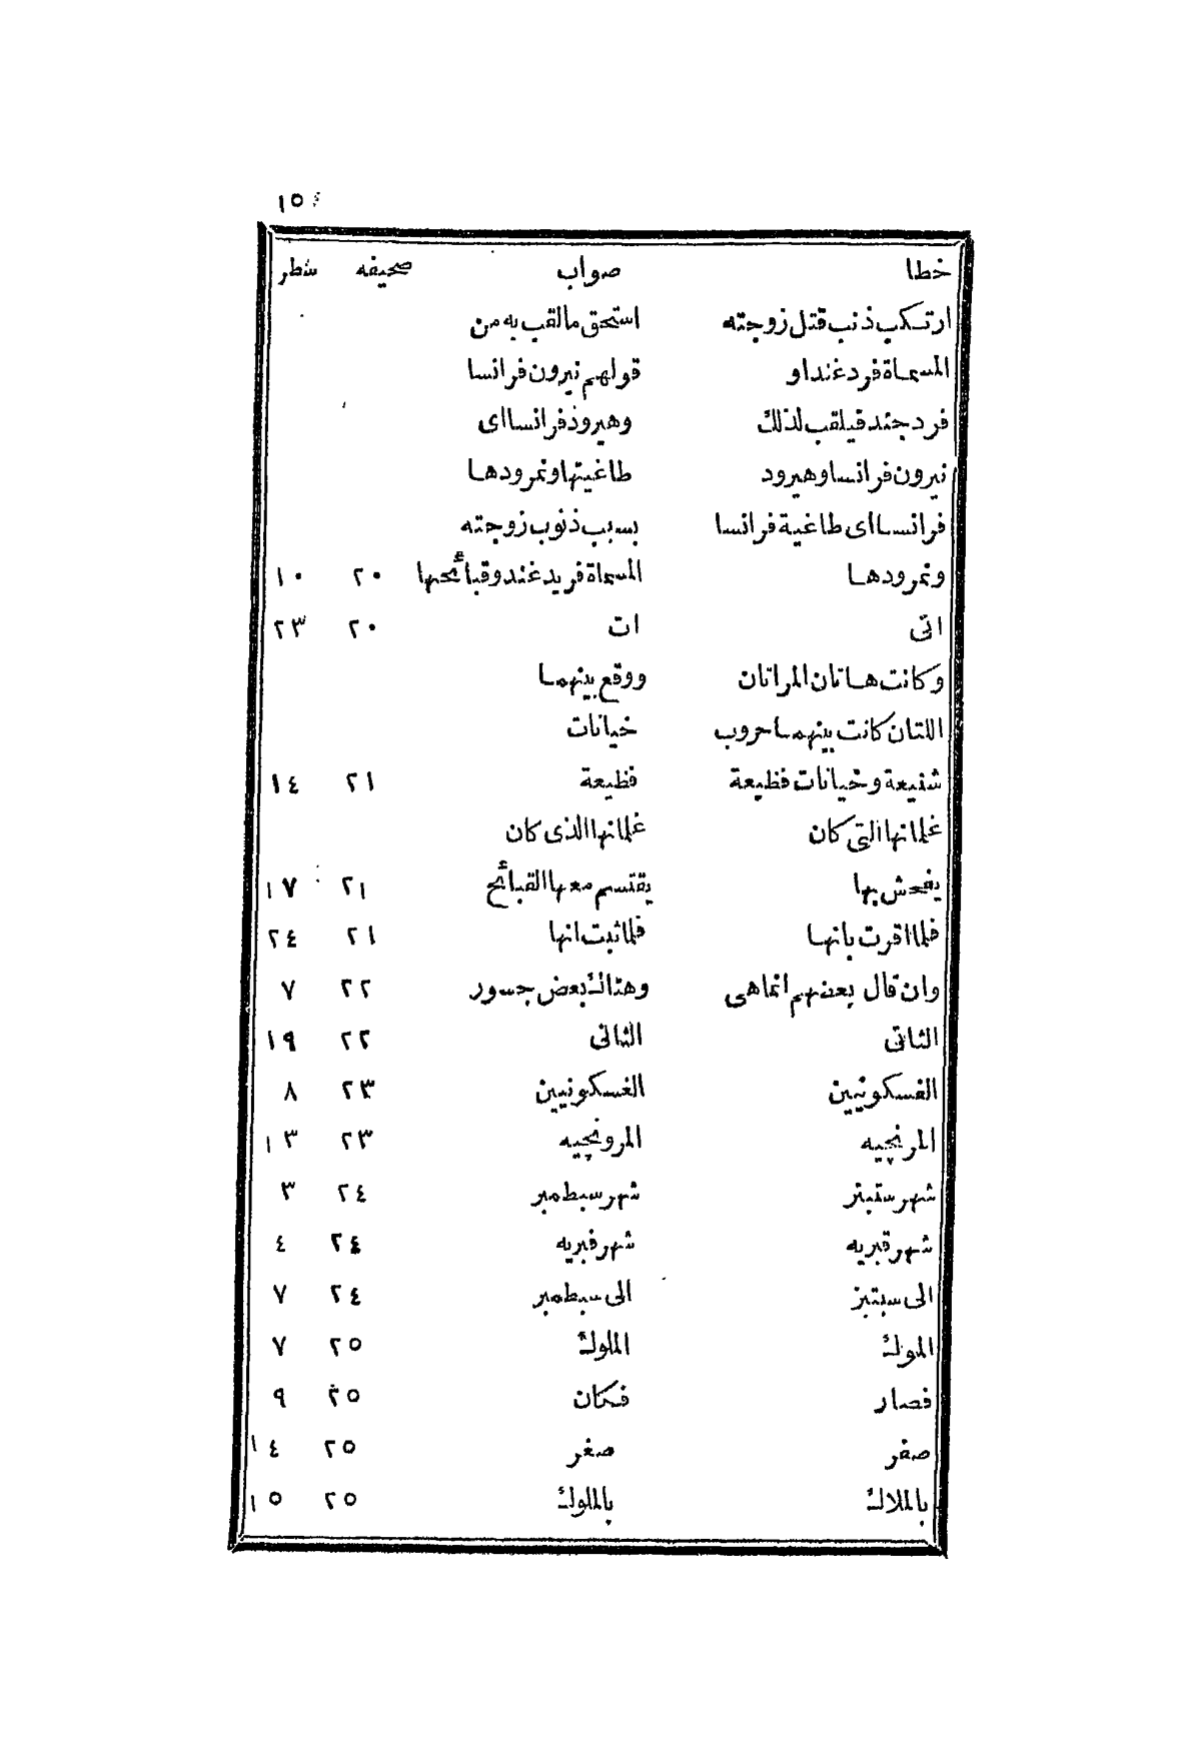 ١٥٤
خطا صواب صحيفه شطر
ارتكب ذنب قتل زوجته استحق مالقب به من
المسماة فردغنداو قولهم نيرون فرانسا
فردجند قيلقب لذلك وهيرود فرانسا اى
نيرون فرانسا وهيرود طاغيتها ونمرودها
فرانسا اى طاغية فرانسا بسبب ذنوب زوجته
ونمرودها المسماة فريدغند وقبائحها ٢٠ ١٠
اتى ات ٢٠ ٢٣
وكانت هاتان المراتان ووقع بينهما
اللتان كانت بينهما حروب خيانات
شنيعة وخيانات فظيعة فظيعة ٢١ ١٤
غلمانها التى كان غلمانها الذى كان
يفحش بها يقتسم معها القبائح ٢١ ١٧
فلما اقرت بانها فلما ثبت انها ٢١ ٢٤
وان قال بعضهم انماهى وهناك بعض جسور ٢٢ ٧
الثاتى الثانى ٢٢ ١٩
الفسكونيين الغسكونيين ٢٣ ٨
المرنجيه المرونجيه ٢٣ ١٣
شهر ستبتر شهر سبطمبر ٢٤ ٣
شهر قبريه شهر فبريه ٢٤ ٤
الى سبتبز الى سبطمبر ٢٤ ٧
الموك الملوك ٢٥ ٧
فصار فكان ٢٥ ٩
صفر صغر ٢٥ ١٤
بالملاك بالملوك ٢٥ ١٥